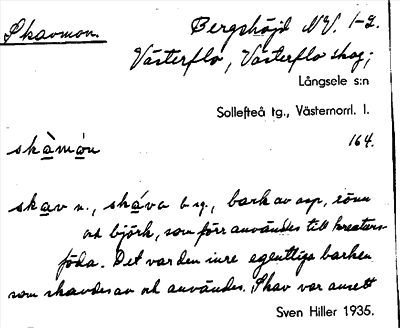 Skavmon.
Bergshöjd NV. 1-2.
Västerflo, Västerflo skog;
Långsele s:n
Sollefteå tg., Västernorrl. l.
164.
skàmón
skav n., skáva b y., bark av asp, rönn
och björk, som förr användes till kreaturs-
föda. Det var den inre egentliga barken
som skavdes av och användes. Skav var ansett
Sven Hiller 1935.